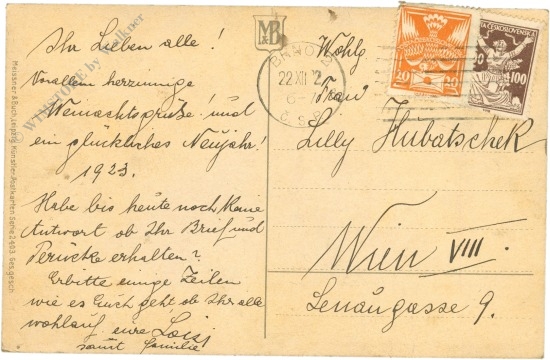 Ihr Lieben alle!
Vorallem herzinnige
Weinachtsgrüße! und
ein glückliches Neujahr!
1923.
Habe bis heute noch keine
Antwort ob Ihr Brief und
Perücke erhalten?
Erbitte einige Zeilen
wie es Euch geht ob Ihr alle
wohlauf eure Loisi
samt Familie
M&B
BRNO 2
22 XII 2
ČESKOSLOVENSKA
20 20
100
Wohlg
Frau
Lilly Hubatschek
Wien VIII.
Lenaugasse 9.
Meissner & Buch, Leipzig. Künstler-Postkarten Serie 2403. Ges. gesch.